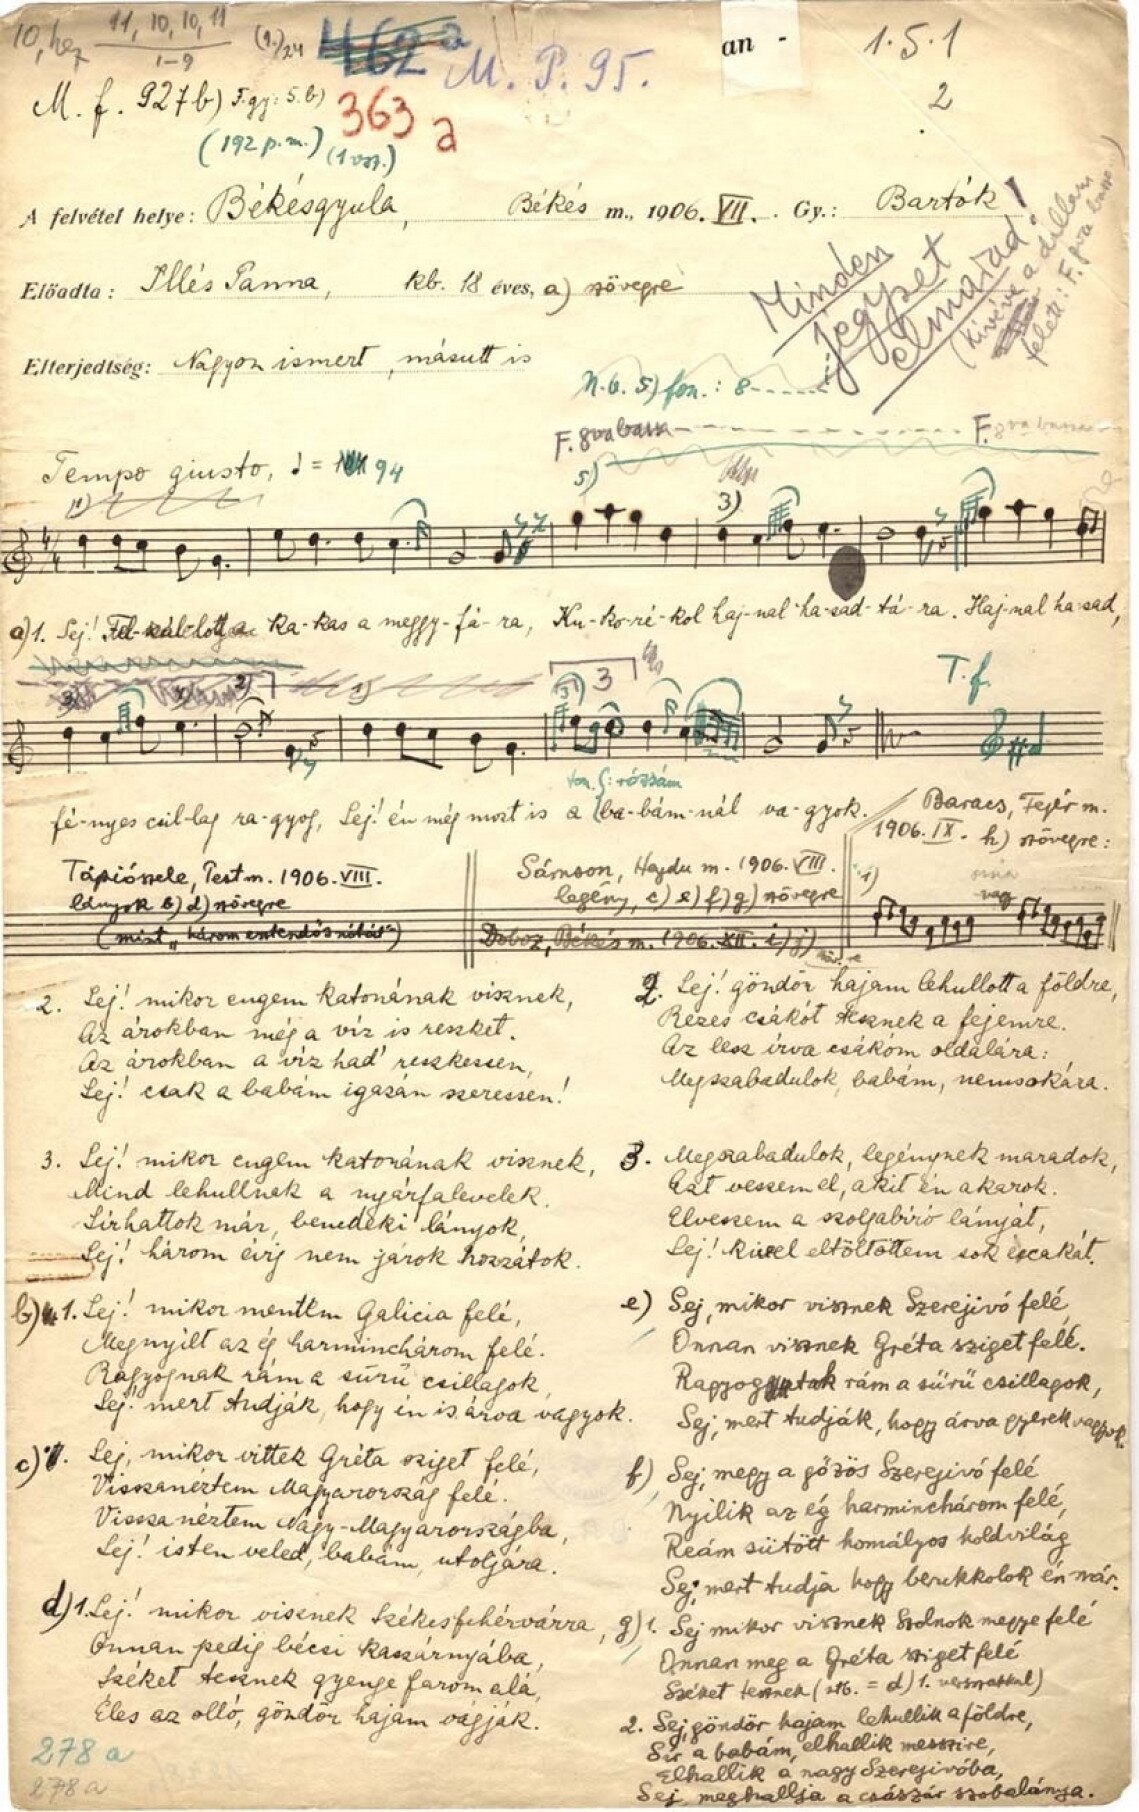 10, hez 11, 10, 10, 11 (1.) 24 462 a an - 1.5.1
1-9 M. P. 95.
M. f. 927 b) F. gy: 5. b) 363 a 2
(192 p. m.) (1 vsz.)
A felvétel helye: Békésgyula, Békés m., 1906. VII. Gy.: Bartók
Előadta: Illés Panna, kb. 18 éves, a) szövegre
Minden
jegyzet
elmarad!
(kivéve a dallam
felett: F. 8va bassa)
Elterjedtség: Nagyon ismert, másutt is
N. b. 5) fon.: 8------
F. 8va bassa F. 8va bassa
Tempo giusto, = 94
1) 5) 3)
a) 1. Sej! Fel-szál-lott a ka-kas a meggy-fá-ra, Ku-ko-ré-kol haj-nal-ha-sad-tá-ra. Haj-nal ha-sad,
T. f.
3 2) 1) 3) 3
fon. : rózsám
fé-nyes csil-lag ra-gyog, Sej! én még most is a ba-bám-nál va-gyok.
Baracs, Fejér m.
1906. IX. h) szövegre:
Tápiószele, Pest m. 1906. VIII.
lányok b) d) szövegre
(mint „három esztendős nótás")
Sámson, Hajdu m. 1906. VIII.
legény, c) e) f) g) szövegre
Doboz, Békés m. 1906. XII. i) j) szövegre
1) vagy
2. Sej! mikor engem katonának visznek,
Az árokban még a víz is reszket.
Az árokban a víz had' reszkessen,
Sej! csak a babám igazán szeressen!
3. Sej! mikor engem katonának visznek,
Mind lehullnak a nyárfalevelek.
Sírhattok már, benedeki lányok,
Sej! három évig nem járok hozzátok.
b) 1. Sej! mikor mentem Galicia felé,
Megnyílt az ég harminchárom felé.
Ragyognak rám a sürü csillagok,
Sej! mert tudják, hogy én is árva vagyok.
c) 1. Sej, mikor vittek Gréta sziget felé,
Visszanéztem Magyarország felé.
Vissza néztem Nagy-Magyarországba,
Sej! isten veled, babám, utoljára.
d) 1. Sej! mikor visznek Székesfehérvárra,
Onnan pedig bécsi kaszárnyába,
Széket tesznek gyenge farom alá,
Éles az olló, göndör hajam vágják.
278 a
278 a
2. Sej! göndör hajam lehullott a földre,
Rezes csákót tesznek a fejemre.
Az lesz írva csákóm oldalára:
Megszabadulok, babám, nemsokára.
3. Megszabadulok, legénynek maradok,
Azt veszem el, akit én akarok.
Elveszem a szolgabíró lányát,
Sej! kivel eltöltöttem sok écakát.
e) Sej, mikor visznek Szerejivó felé,
Onnan visznek Gréta sziget felé.
Ragyogtak rám a sürü csillagok,
Sej, mert tudják, hogy árva gyerek vagyok.
f) Sej, megy a gőzös Szerejivó felé
Nyilik az ég harminchárom felé,
Reám sütött homályos holdvilág
Sej, mert tudja hogy berukkolok én már.
g) 1. Sej mikor visznek Szolnok megye felé
Onnan meg a Gréta sziget felé
Széket tesznek (stb. = d) 1. versszakkal)
2. Sej, göndör hajam lehullik a földre,
Sír a babám, elhallik messzire,
Elhallik a nagy Szerejivóba,
Sej, meghallja a császár szobalánya.